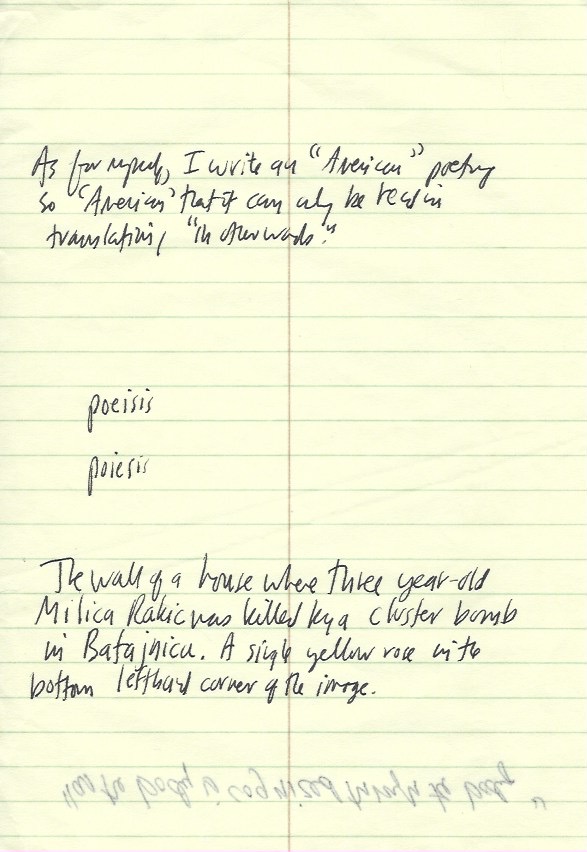 As for myself, I write an "American" poetry
so "American" that it can only be read in
translation, "in other words."
poeisis
poiesis
The wall of a house where three year-old
Milica Rakic was killed by a cluster bomb
in Batajnica. A single yellow rose in the
bottom lefthand corner of the image.
the body is cognized through the body"